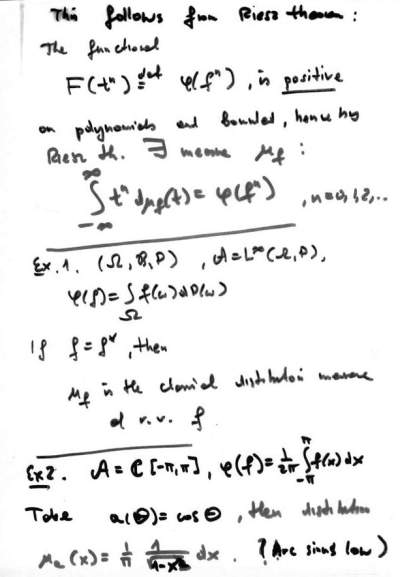 This follows from Riesz theorem :
The functional
F(tⁿ) ≝ φ(fⁿ) , is positive
on polynomials and bounded, hence by
Riesz th. ∃ measure μ_f :
∫_{-∞}^{∞} tⁿ dμ_f(t) = φ(fⁿ) , n=0,1,2,...
Ex. 1. (Ω, B, P) , A = L^∞(Ω, P),
φ(f) = ∫_Ω f(ω) dP(ω)
If f = f* , then
μ_f is the classical distribution measure
of r.v. f
Ex 2. A = C [-π,π] , φ(f) = 1/2π ∫_{-π}^{π} f(x) dx
Take a(Θ) = cos Θ , then distribution
μ_a (x) = 1/π 1/√(1-x²) dx . (Arc sinus law)